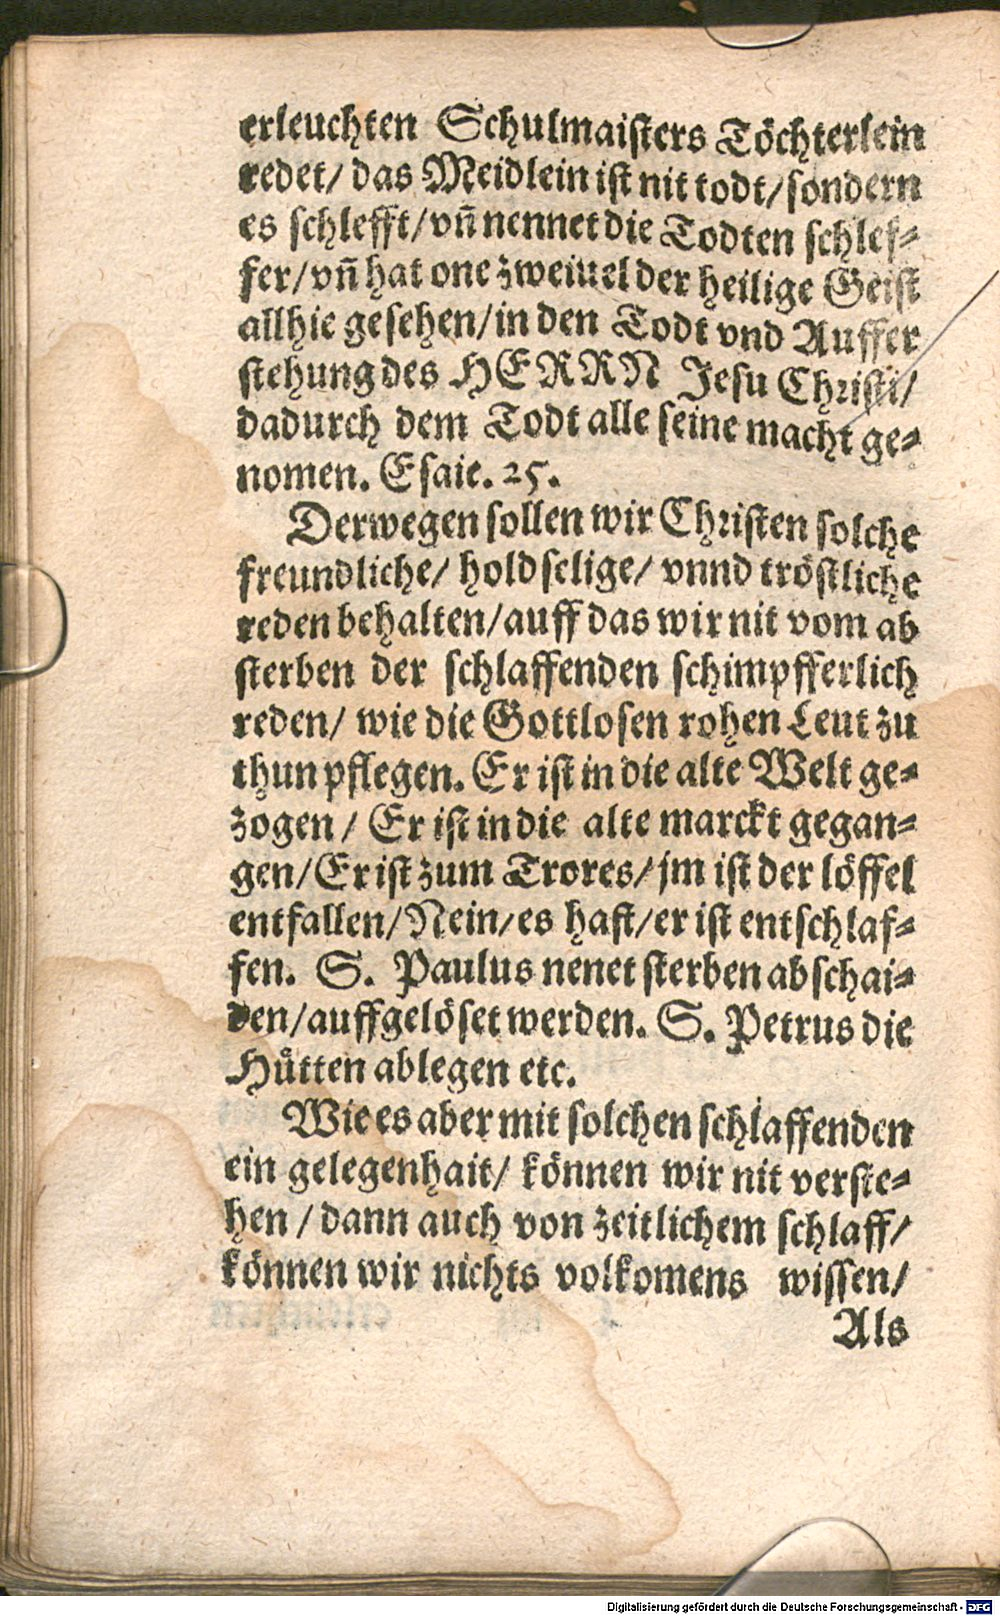 erleuchten Schulmaisters Töchterlein
redet/ das Meidlein ist nit todt/ sondern
es schlefft/ vn̄ nennet die Todten schlef⸗
fer/ vn̄ hat one zweiuel der heilige Geist
allhie gesehen/ in den Todt vnd Auffer
stehung des HERRN Jesu Christi/
dadurch dem Todt alle seine macht ge⸗
nomen. Esaie. 25.
Derwegen sollen wir Christen solche
freundliche/ holdselige/ vnnd tröstliche
reden behalten/ auff das wir nit vom ab
sterben der schlaffenden schimpfferlich
reden/ wie die Gottlosen rohen Leut zu
thun pflegen. Er ist in die alte Welt ge⸗
zogen/ Er ist in die alte marckt gegan⸗
gen/ Er ist zum Trores/ jm ist der löffel
entfallen/ Nein/ es hast/ er ist entschlaf⸗
fen. S. Paulus nenet sterben abschai⸗
den/ auffgelöset werden. S. Petrus die
Hütten ablegen etc.
Wie es aber mit solchen schlaffenden
ein gelegenhait/ können wir nit verste⸗
hen/ dann auch von zeitlichem schlaff/
können wir nichts volkomens wissen/
Als
Digitalisierung gefördert durch die Deutsche Forschungsgemeinschaft - DFG